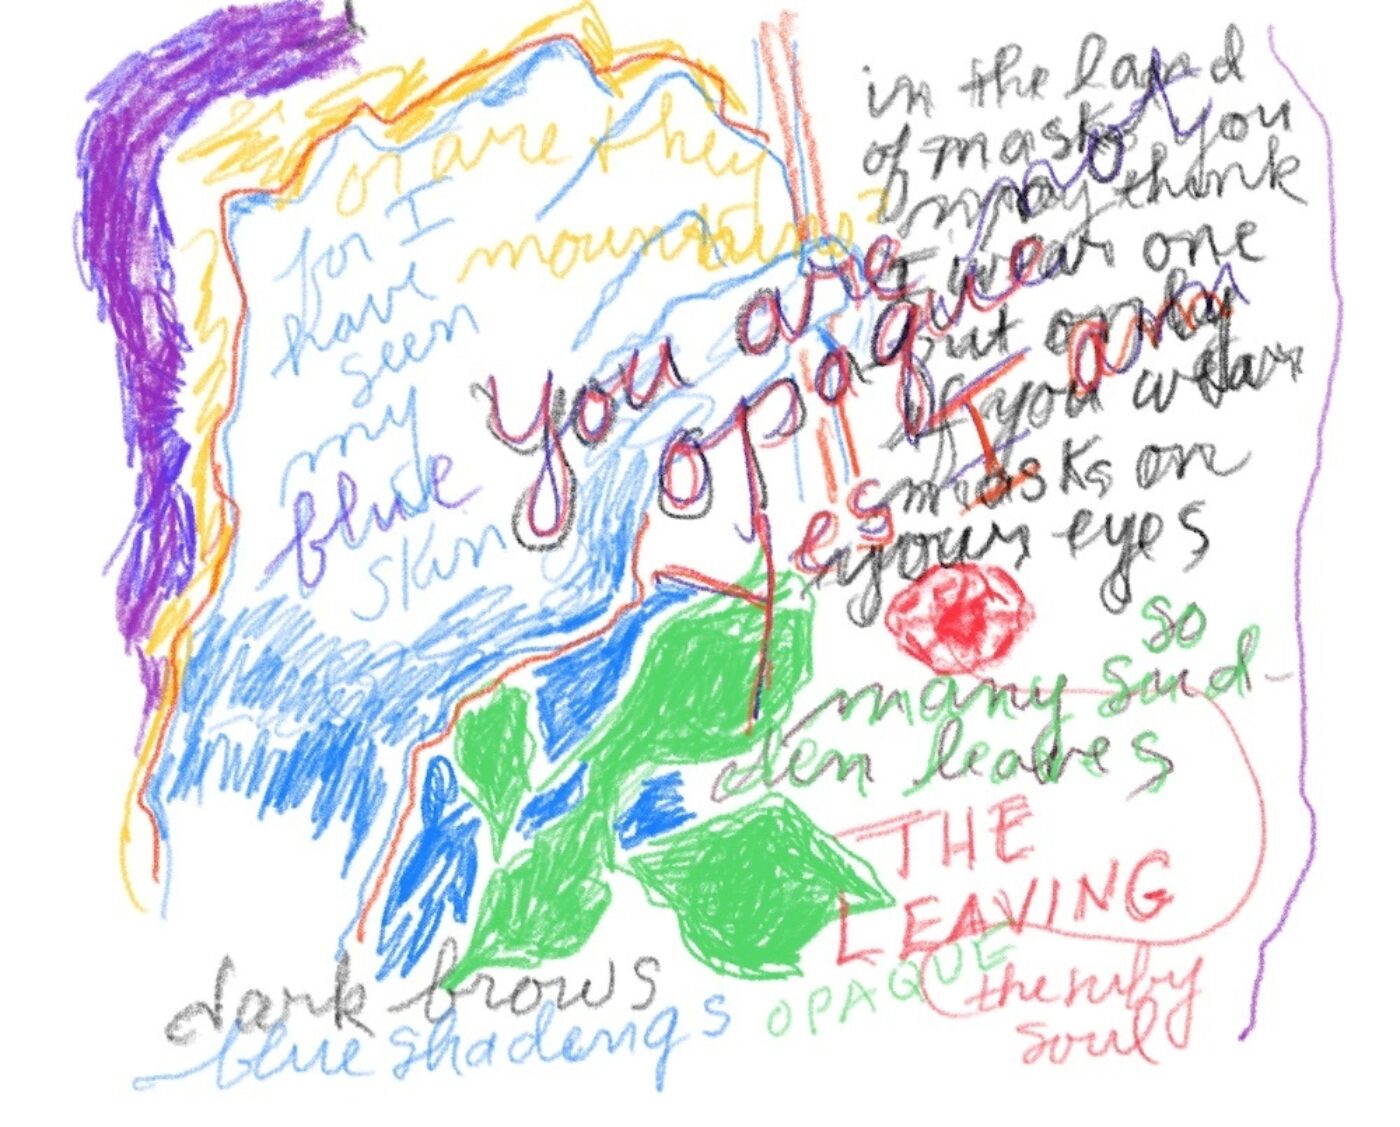 or are they
mountains?
for I
have
seen
my
blue
skin
you are
opaque
I am
not
in the land
of masks you
may think
I wear one
but only
if you wear
masks on
your eyes
so
many sud-
den leaves
THE
LEAVING
OPAQUE
the ruby
soul
dark brows
blue shadings